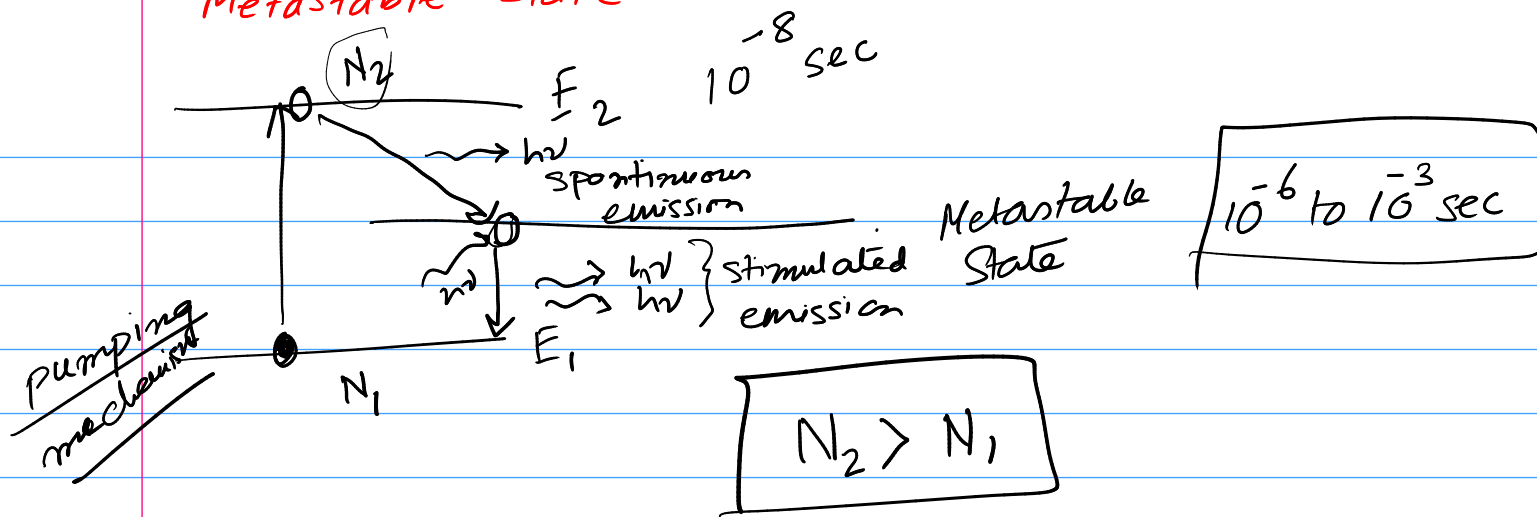 Metastable State
N₂
E₂
10⁻⁸ sec
hν
spontinuous
emission
Metastable
State
10⁻⁶ to 10⁻³ sec
hν
hν } stimulated
hν } emission
E₁
pumping
mechanism
N₁
N₂ > N₁